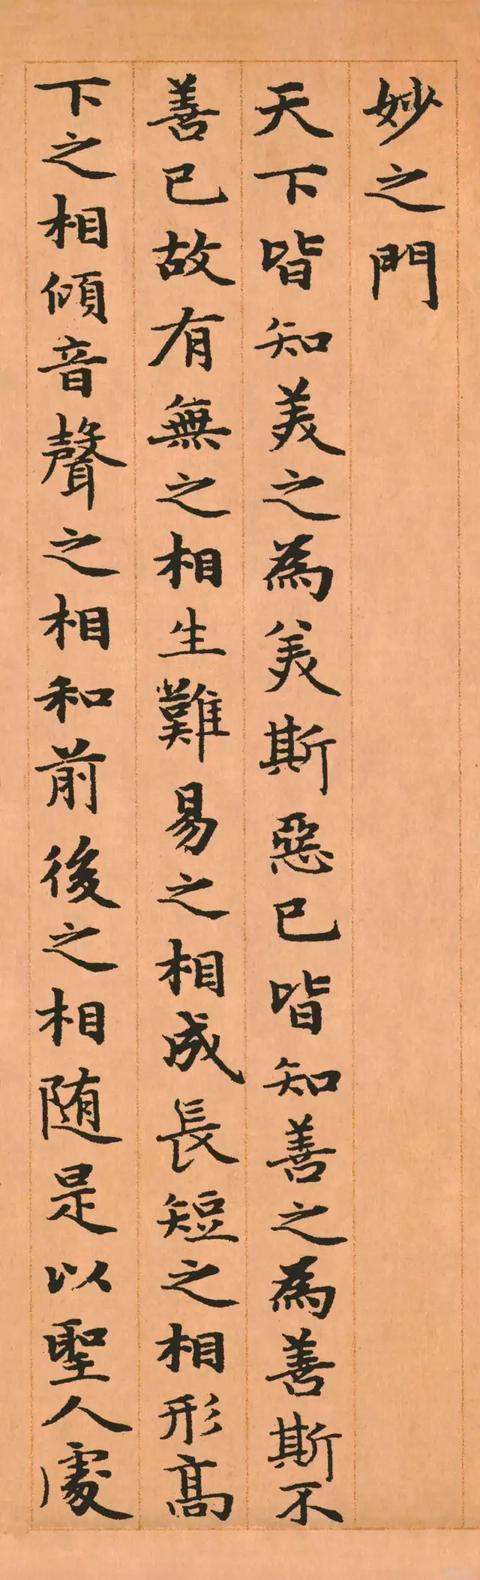 妙之門
天下皆知美之為美斯惡已皆知善之為善斯不
善已故有無之相生難易之相成長短之相形高
下之相傾音聲之相和前後之相随是以聖人處